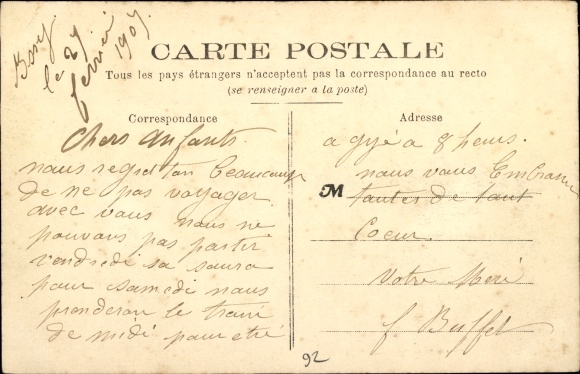 Bony
le 27
fevrier
1907
CARTE POSTALE
Tous les pays étrangers n'acceptent pas la correspondance au recto
(se renseigner a la poste)
Correspondance
Chers anfants.
nous regreton beaucoup
de ne pas voyager
avec vous nous ne
pouvons pas partir
vendredi sa sera
pour samedi nous
prenderon le train
de midi pour etré
Adresse
a gyé a 8 heurs.
nous vous Embrasse
M
toutes de tout
Coeur.
Votre Meré
f. Buffet
92